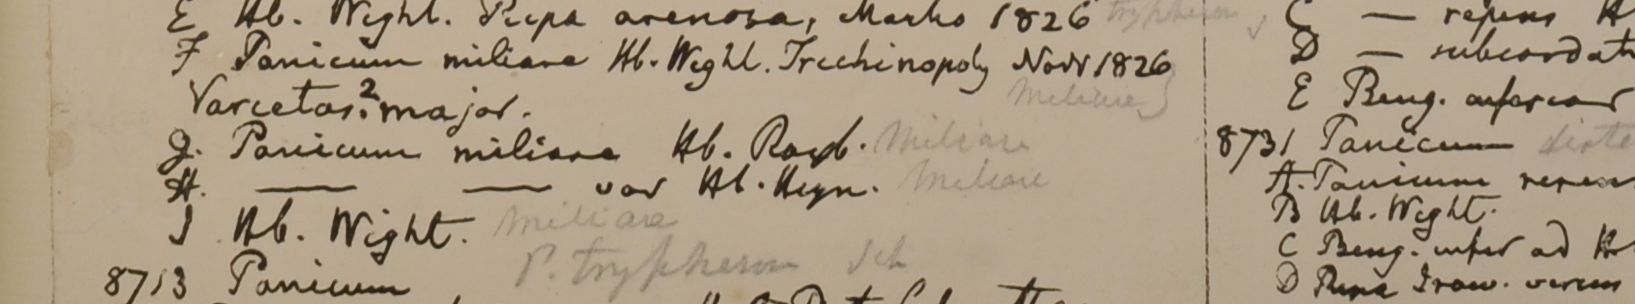 E Hb. Wight. Ripa arenosa, Martio 1826 trypheron
F Panicum miliare Hb. Wight. Trichinopoly Novr 1826
Varietas? major. Miliare
G. Panicum miliare Hb. Roxb. Miliare
H. — — var Hb. Heyn. Miliare
I Hb. Wight. Miliare
P. trypheron Sch
8713 Panicum
C — repens H
D — subcordat
E Beng.
8731 Panicum
A. Panicum repens
B Hb. Wight.
C Beng. infer ad H
D Ripa Iraw.